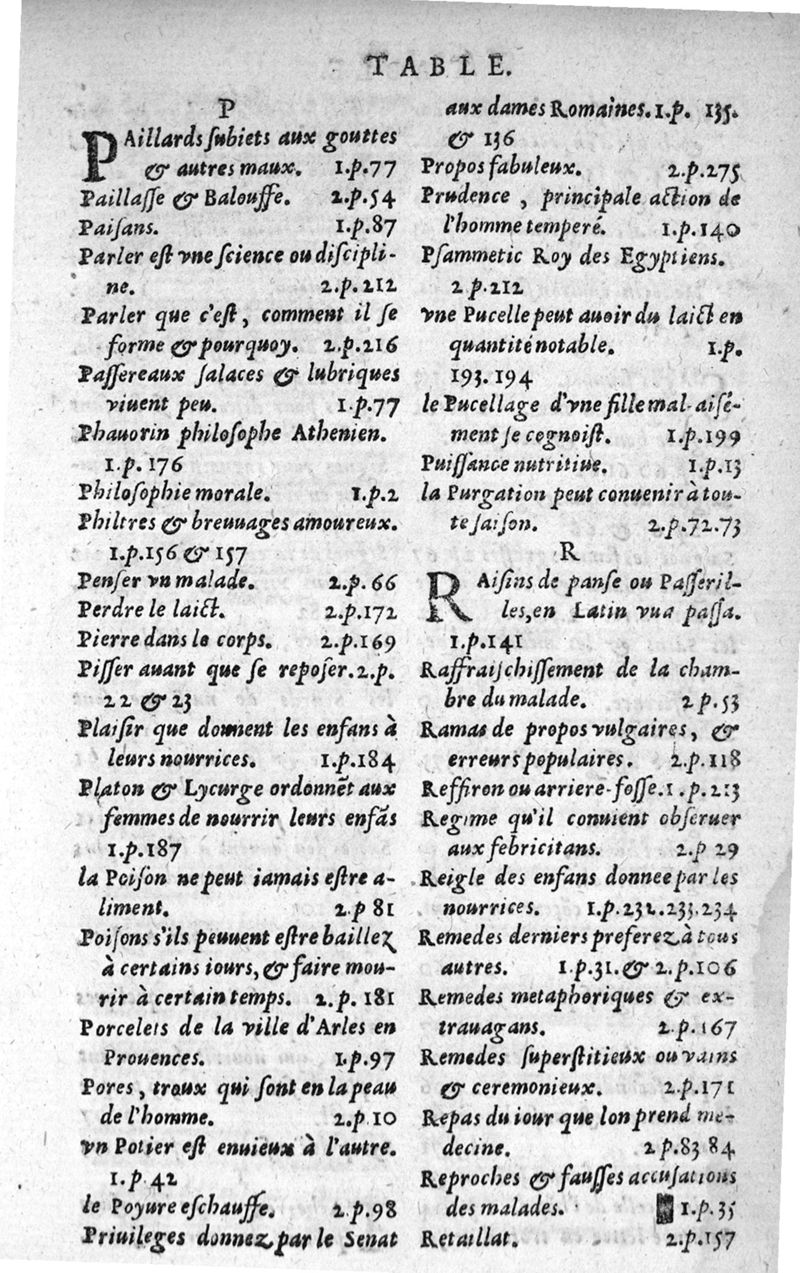 TABLE.
P
PAillards ſubiets aux gouttes
& autres maux. 1.p.77
Paillaſſe & Balouffe. 2.p.54
Paiſans. 1.p.87
Parler eſt vne ſcience ou diſcipli-
ne. 2.p.212
Parler que c'eſt, comment il ſe
forme & pourquoy. 2.p.216
Paſſereaux ſalaces & lubriques
viuent peu. 1.p.77
Phauorin philoſophe Athenien.
1.p.176
Philoſophie morale. 1.p.2
Philtres & breuuages amoureux.
1.p.156 & 157
Penſer vn malade. 2.p.66
Perdre le laict. 2.p.172
Pierre dans le corps. 2.p.169
Piſſer auant que ſe repoſer. 2.p.
22 & 23
Plaiſir que donnent les enfans à
leurs nourrices. 1.p.184
Platon & Lycurge ordonnẽt aux
femmes de nourrir leurs enfãs
1.p.187
la Poiſon ne peut iamais eſtre a-
liment. 2.p 81
Poiſons s'ils peuuent eſtre baillez
à certains iours, & faire mou-
rir à certain temps. 2.p.181
Porcelets de la ville d'Arles en
Prouences. 1.p.97
Pores, troux qui ſont en la peau
de l'homme. 2.p.10
vn Potier eſt enuieux à l'autre.
1.p.42
le Poyure eſchauffe. 2.p.98
Priuileges donnez par le Senat
aux dames Romaines. 1.p. 135.
& 136
Propos fabuleux. 2.p.275
Prudence, principale action de
l'homme temperé. 1.p.140
Pſammetic Roy des Egyptiens.
2 p.212
vne Pucelle peut auoir du laict en
quantité notable. 1.p.
193. 194
le Pucellage d'vne fille mal-aiſé-
ment ſe cognoiſt. 1.p.199
Puiſſance nutritiue. 1.p.13
la Purgation peut conuenir à tou-
te ſaiſon. 2.p.72.73
R
RAiſins de panſe ou Paſſeril-
les, en Latin vua paſſa.
1.p.141
Raffraiſchiſſement de la cham-
bre du malade. 2 p.53
Ramas de propos vulgaires, &
erreurs populaires. 2.p.118
Reffiron ou arriere-foſſe. 1.p.213
Regime qu'il conuient obſeruer
aux febricitans. 2.p 29
Reigle des enfans donnee par les
nourrices. 1.p.232.233.234
Remedes derniers preferez à tous
autres. 1.p.31. & 2.p.106
Remedes metaphoriques & ex-
trauagans. 2.p.167
Remedes ſuperſtitieux ou vains
& ceremonieux. 2.p.171
Repas du iour que lon prend me-
decine. 2 p.83 84
Reproches & fauſſes accuſations
des malades. 1.p.35
Retaillat. 2.p.157